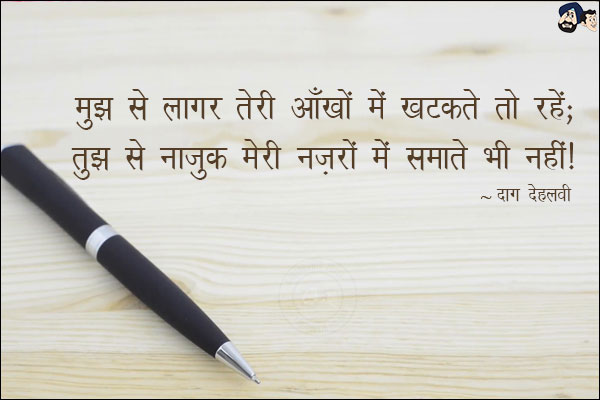 मुझ से लागर तेरी आँखों में खटकते तो रहें;
तुझ से नाजुक मेरी नज़रों में समाते भी नहीं!
~ दाग देहलवी